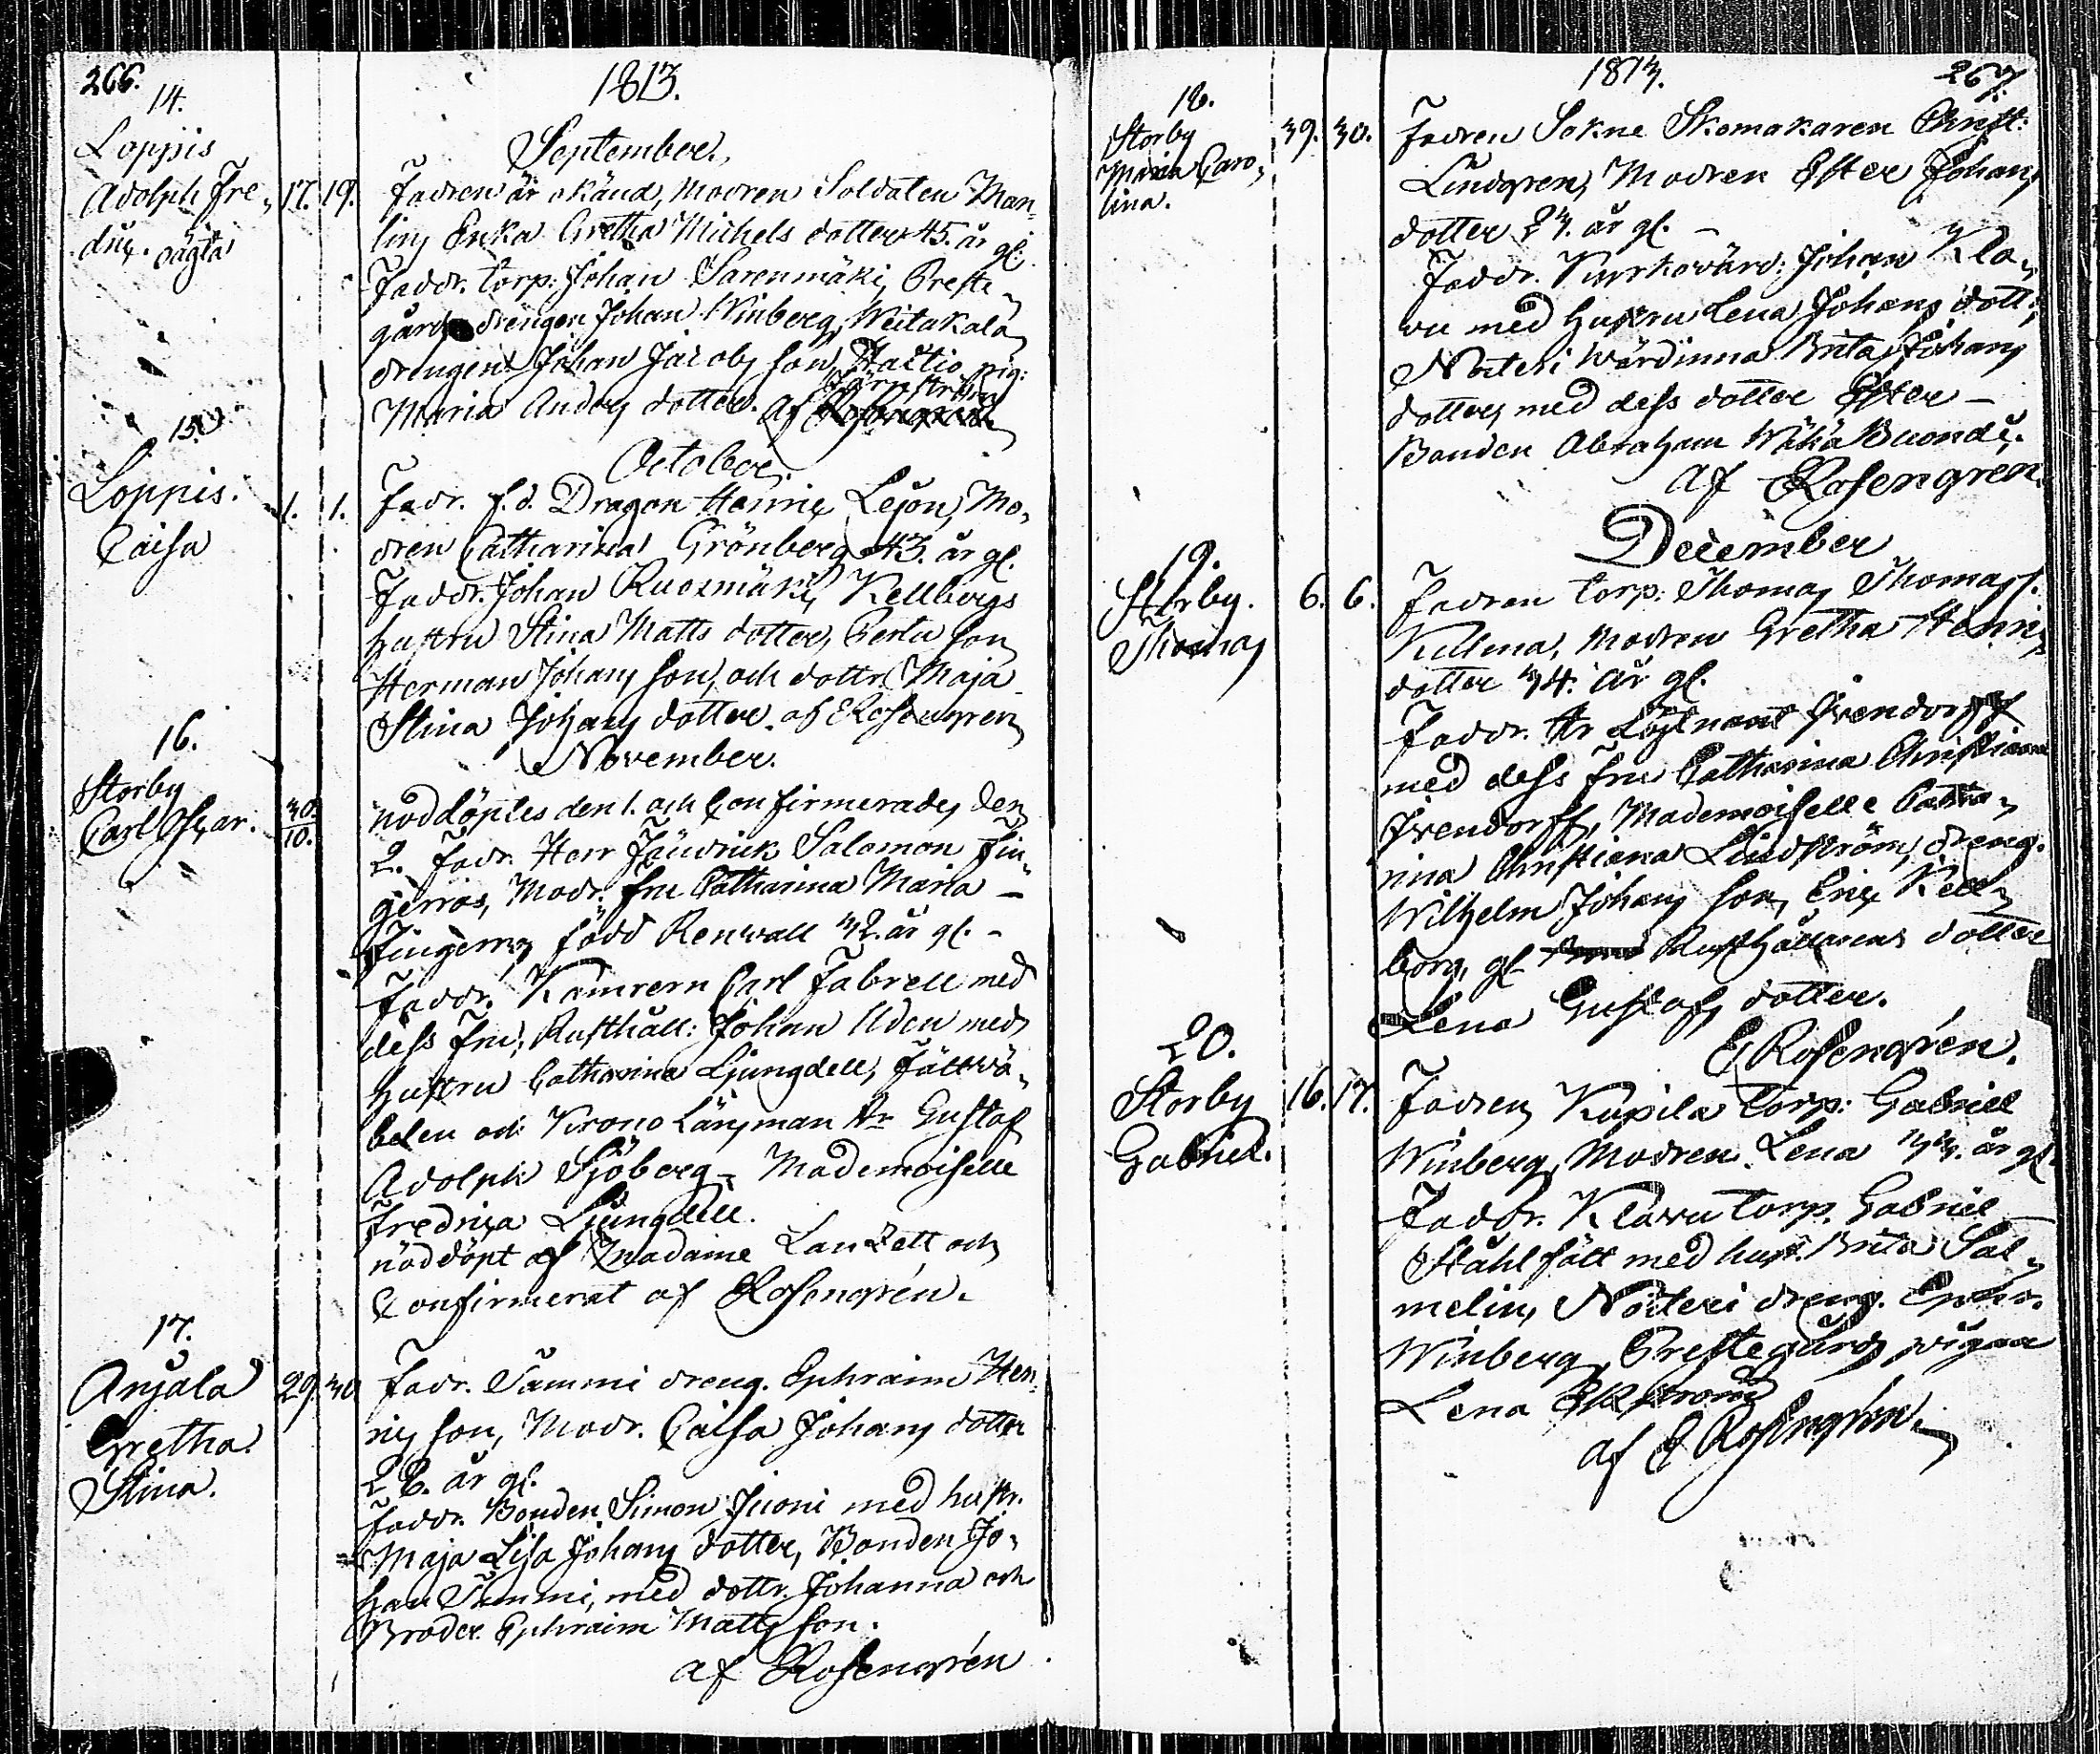 266.
1813.
14.
Loppis
Adolph Fre-
dric. oägta
17. 19.
September.
Fadren är okänd, modren Soldaten Man-
lins Enka Gretha Michels dotter 45. år gl.
Faddr. Torp: Johan Sarenmäki, Preste-
gårds drengen Johan Winberg, Weitakala
drengen Johan Jacobs son, pig:
Maria Anders dotter. af
15.
Loppis.
Caisa
1. 1.
October.
Fadr. f.d. Dragon Henric Lejon, Mo-
dren Catharina Grönberg 43. år gl.
Faddr. Johan Ruoxmäki, Kellbergs
hustru Stina Matts dotter, son
Herman Johans son, och dottr. Maja
Stina Johans dotter. af E Rosengren
16.
Storby
Carl Oscar.
30.
10.
November.
nöddöptes den 1. och Confirmerades den
2. Fadr. Herr Salomon Fin-
gerroos, Modr. Fru Catharina Maria
Fingerroos född Renvall 32. år gl.
Faddr. Kamrern Carl Fabrell med
dess Fru, Rusthåll: Johan Uden med
hustru Catharina Ljungdell, Fältwä-
belen och Krono Länsman Hr Gustaf
Adolph Sjöberg, Mademoiselle
Fredrica Ljungdell.
nöddöpt af Madame och
Confirmerat af Rosengrén.
17.
Anjala
Gretha
Stina.
29. 30
Fadr. Tammi dreng. Ephraim Hen-
rics son, Modr. Caisa Johans dotter
26. år gl.
Faddr. Bonden Simon Juoni med hustr.
Maja Lisa Johans dotter, Bonden Jo-
han Tammi, med dottr. Johanna och
Broder Ephraim Matts son.
af Rosengrén
1813.
267.
18.
Storby
Maria Caro-
lina.
29. 30.
Fadren Sokne Skomakaren Christ:
Lindgren, Modren Ester Johans
dotter 23. år gl.
Faddr. Kyrkovärd: Johan Kla-
vu med hustru Lena Johans dott:
Noiteri Wärdinna Brita Johans
dotter, med dess dotter Ester
Bonden Abraham
af Rosengren.
19.
Storby.
Thomas
6. 6.
December
Fadren Torp: Thomas Thomass.
modren Gretha Henrics
dotter 34. år gl.
Faddr. Hr Löjtnant Ivendorff
med dess fru Catharina Christiana
Ivendorff, Mademoiselle Catha-
rina Christiana Lindström, dreng.
Wilhelm Johans son, Eric Kell-
berg, gl. Rusthållarens dotter
Lena Gustafs dotter.
E Rosengrén.
20.
Storby
Gabriel.
16. 17.
Fadren Kapila Torp: Gabriel
Winberg, Modren Lena 33. år gl.
Faddr. Klavu Torp. Gabriel
Stählfält med hust. Brita Sal-
melin, Noiteri dreng.
Winberg, Prestegårds pigan
Lena
af E Rosengrén.